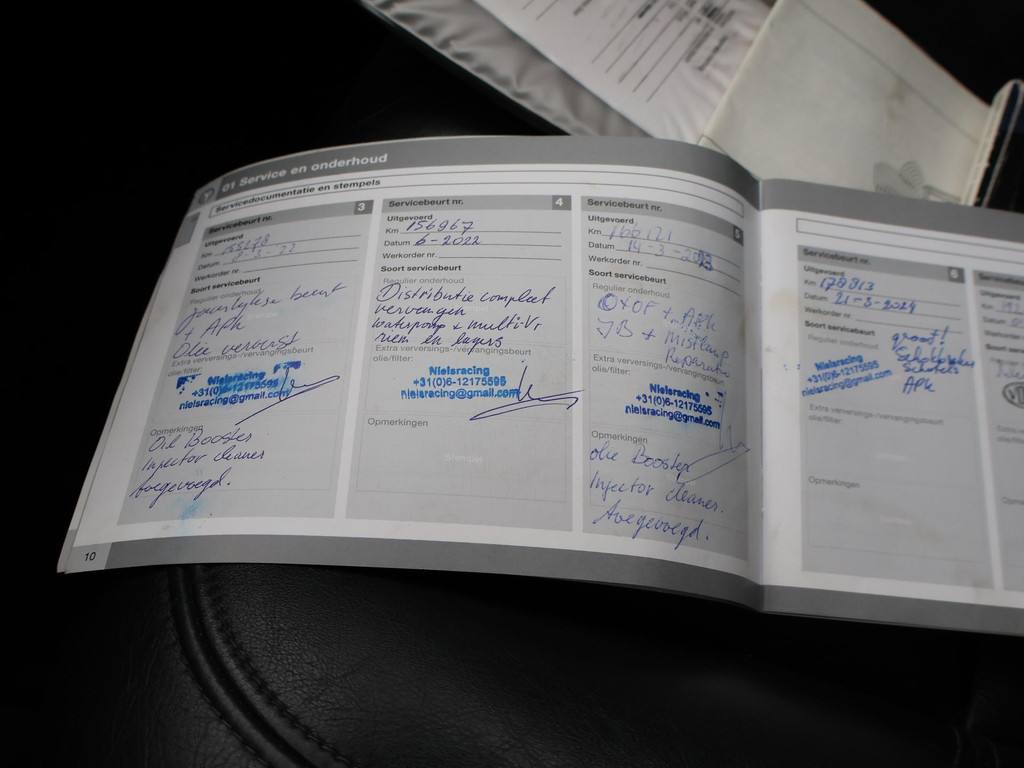 01 Service en onderhoud
Servicedocumentatie en stempels
Servicebeurt nr. 3
Uitgevoerd
Km
Datum
Werkorder nr.
Soort servicebeurt
Regulier onderhoud
Jaarlijkse beurt
+ APK
Olie ververst
Extra verversings-/vervangingsbeurt
olie/filter:
Nielsracing
+31(0)6-12175595
nielsracing@gmail.com
Opmerkingen
Oil Booster
Injector cleaner
toegevoegd.
10
Servicebeurt nr. 4
Uitgevoerd
Km 156967
Datum 6-2022
Werkorder nr.
Soort servicebeurt
Regulier onderhoud
Distributie compleet
vervangen
waterpomp + multi-V,
riem en lagers
Extra verversings-/vervangingsbeurt
olie/filter:
Nielsracing
+31(0)6-12175595
nielsracing@gmail.com
Opmerkingen
Stempel
Servicebeurt nr. 5
Uitgevoerd
Km 166121
Datum 14-3-2023
Werkorder nr.
Soort servicebeurt
Regulier onderhoud
O+OF + APK
+ Mistlamp
Reparatie
Extra verversings-/vervangingsbeurt
olie/filter:
Nielsracing
+31(0)6-12175595
nielsracing@gmail.com
Opmerkingen
olie Booster
Injector cleaner.
toegevoegd.
Servicebeurt nr. 6
Uitgevoerd
Km 178913
Datum 21-5-2024
Werkorder nr.
Soort servicebeurt
Regulier onderhoud
groot!
APK
Nielsracing
+31(0)6-12175595
nielsracing@gmail.com
Extra verversings-/vervangingsbeurt
olie/filter:
Opmerkingen